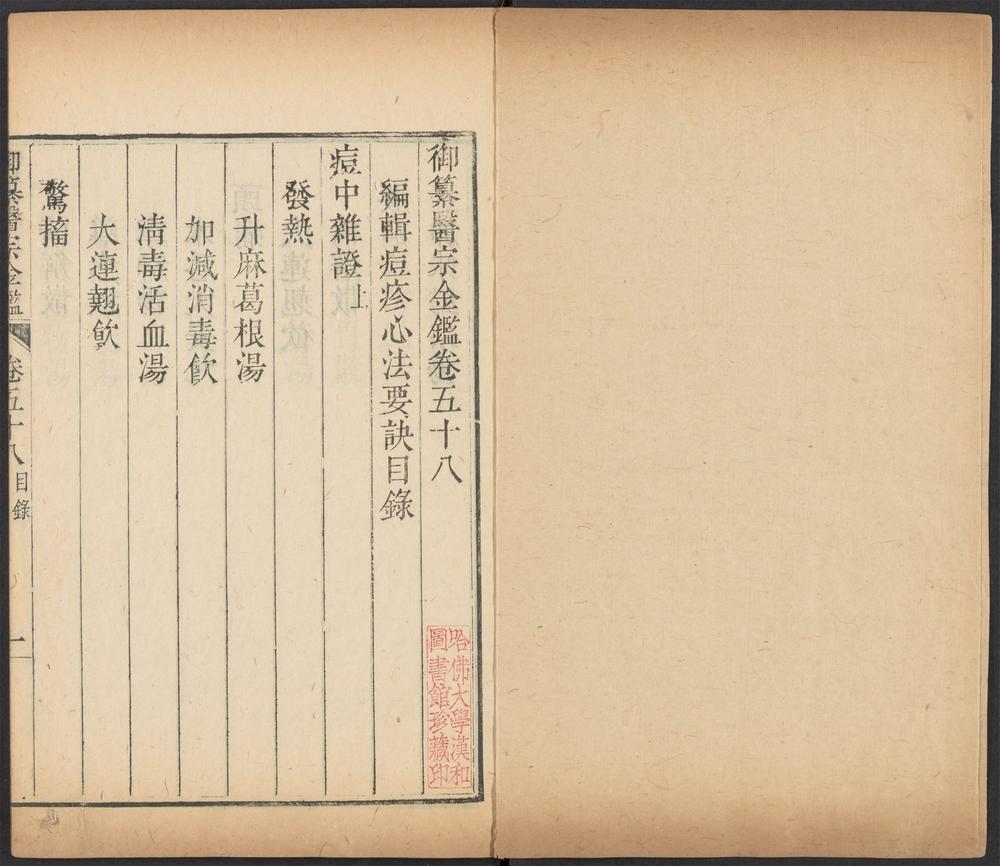 御纂醫宗金鑑卷五十八
編輯痘疹心法要訣目錄
痘中雜證上
發熱
升麻葛根湯
加減消毒飮
淸毒活血湯
大連翹飮
驚搐
御纂醫宗金鑑
卷五十八
目錄
一
哈佛大學漢和
圖書館珍藏印